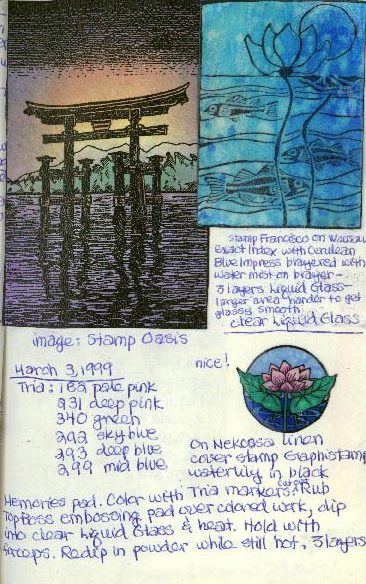 Stamp Francisco on Wausau
Exact Index with Cerulean
Blue Impress brayered with
water mist on brayer-
3 layers Liquid Glass-
larger area harder to get
glassy smooth
clear Liquid Glass
image: Stamp Oasis
March 3, 1999
Tria: 182 pale pink
231 deep pink
340 green
242 sky blue
293 deep blue
299 mid blue
nice!
On Nekoosa linen
cover stamp Graphistamp
waterlily in black
Memories pad. Color with Tria markers, cut out. Rub
Top Boss embossing pad over colored work, dip
into clear Liquid Glass & heat. Hold with
forceps. Redip in powder while still hot, 3 layers